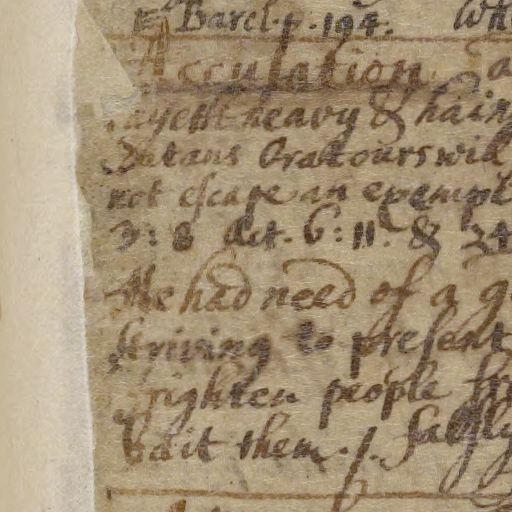 E Barcl. p. 194. Wh
Accusation a
layeth heavy & hain
Satans Oratours wid
not escape an exempl
3: 8 Act. 6: 11. & 24
He had need of a g
striving to present
frighten people fr
bait them. J. falsly